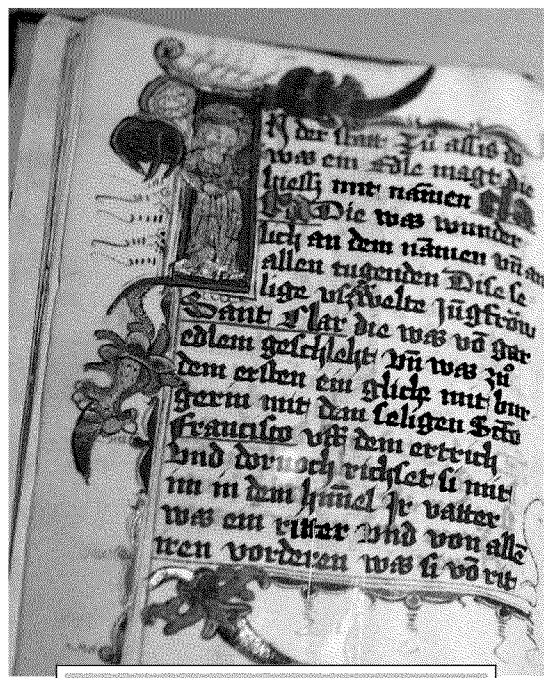 N der statt zů assis do
was ein edle magt die
hiessz mit namen Cla
ra Die was wunder
lich an dem namen vn̄ an
allen tugenden Dise se
lige vszwelte jūgfröw
Sant Clar die was vō gar
edlem geschleht vn̄ was zů
dem ersten ein glich mit bur
gerin mit dem seligen Scto
Francisco vff dem ertrich
vnd dornoch richset si mit
im in dem him̄el Jr vatter
was ein ritter vnd von allē
iren vorderen was si vō rit